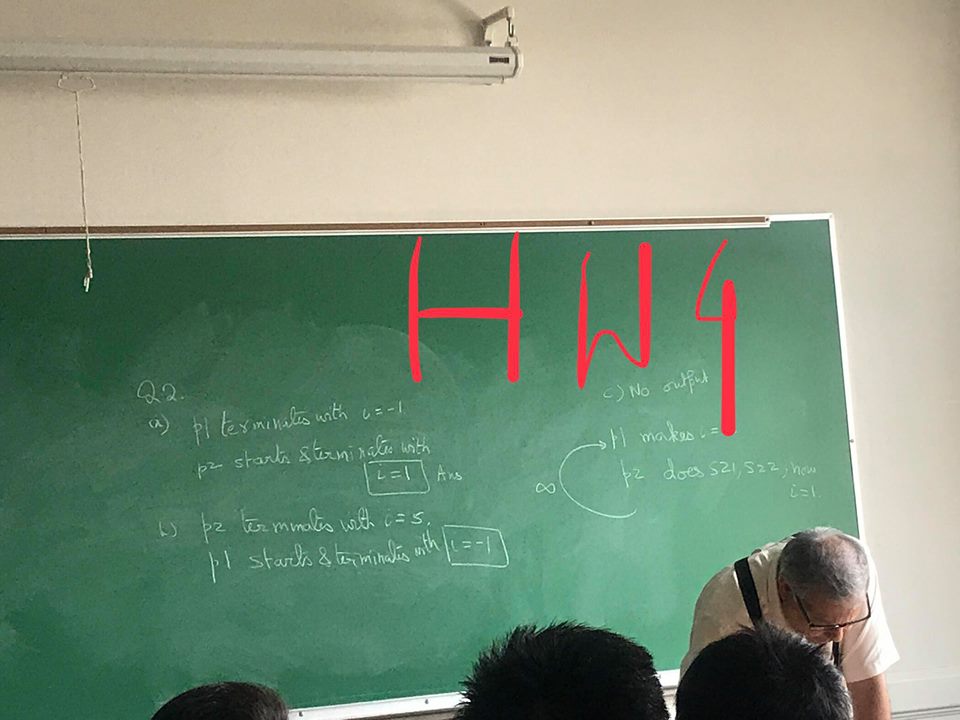 HW4
Q2.
a) p1 terminates with i=-1
p2 starts & terminates with
i=1 Ans
b) p2 terminates with i=5,
p1 starts & terminates with i=-1
c) No output
p1 makes i=
∞ p2 does S21, S22, now
i=1